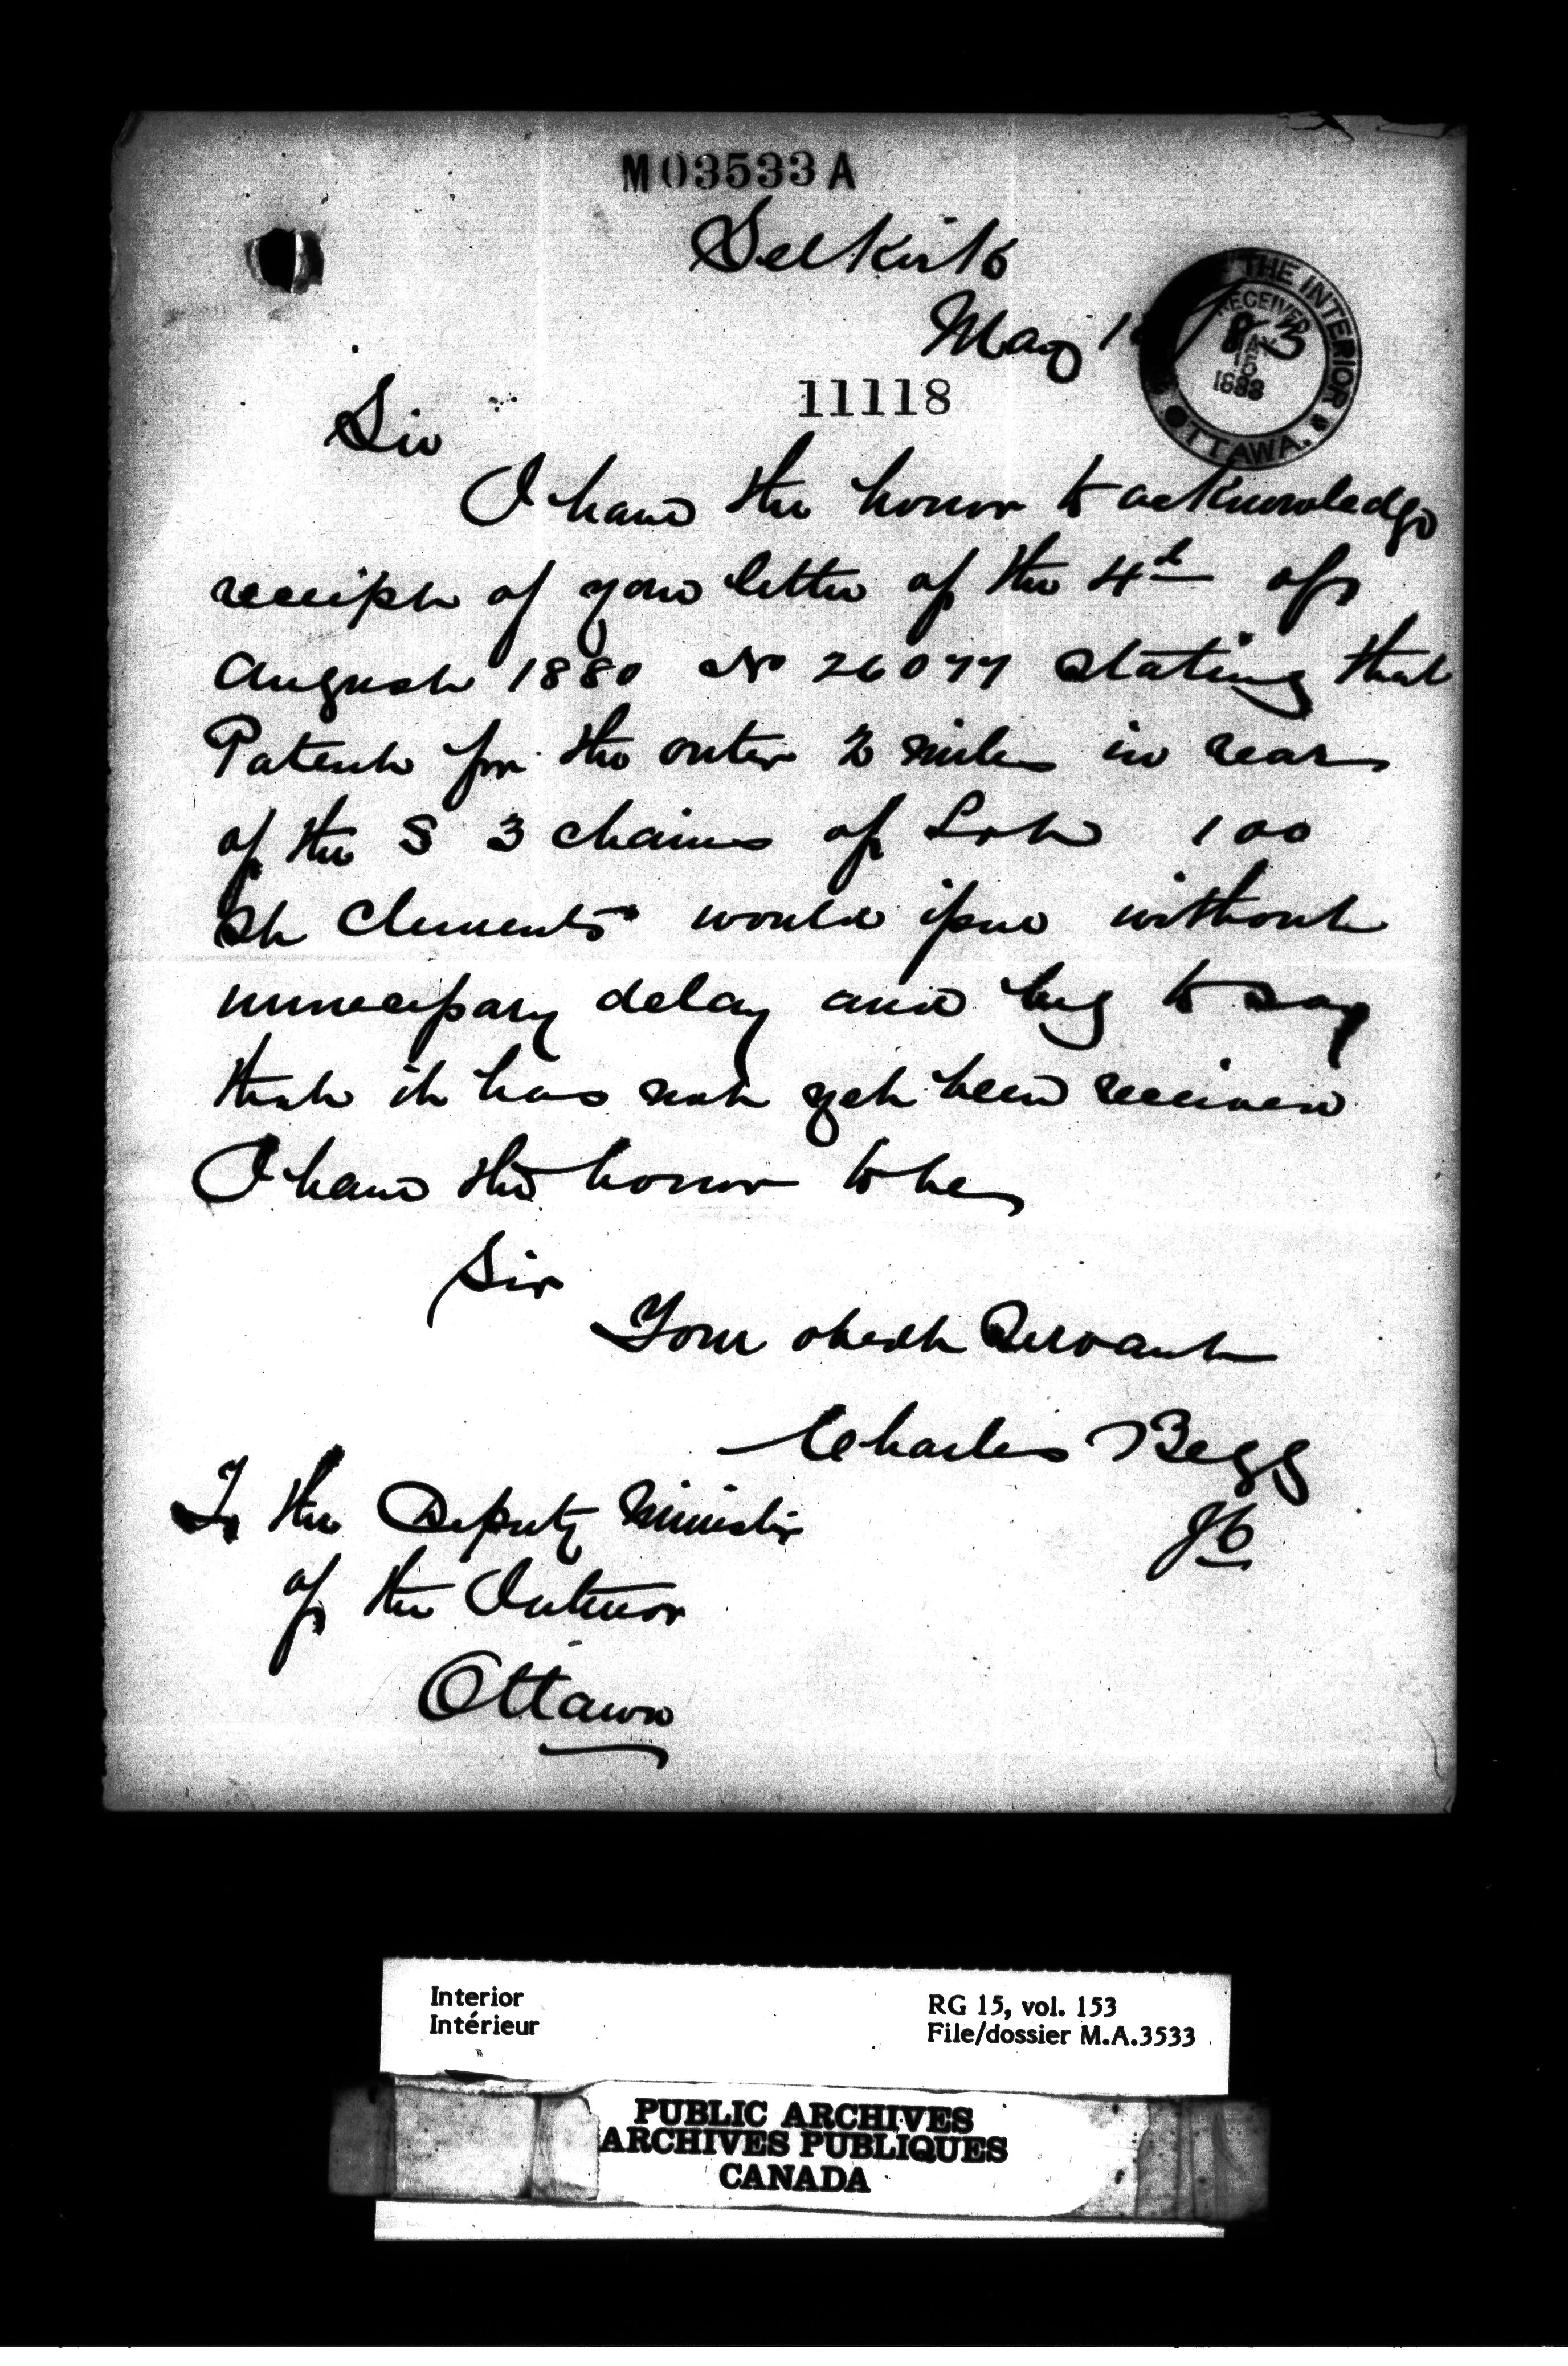 M03533A
Selkirk
May 1
THE INTERIOR
RECEIVED
83
MAY
15
1883
OTTAWA.
11118
Sir
I have the honor to acknowledge
receipt of your letter of the 4th of
August 1880 No 26077 stating that
Patent for the outer 2 miles in rear
of the S 3 chains of Lot 100
St Clements would issue without
unnecessary delay and beg to say
that it has not yet been received
I have the honor to be
Sir
Your obedt Servant
Charles Begg
To the Deputy Minister
of the Interior
Ottawa
Interior
Intérieur
RG 15, vol. 153
File/dossier M.A.3533
PUBLIC ARCHIVES
ARCHIVES PUBLIQUES
CANADA